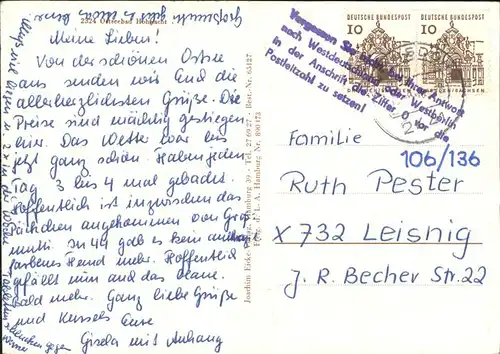 2324 Ostseebad Hohwacht
Meine Lieben!
Von der schönen Ostsee
aus senden wir Euch die
allerherzlichsten Grüße. Die
Preise sind mächtig gestiegen
hier. Das Wetter war bis
jetzt ganz schön. Haben jeden
Tag 3 bis 4 mal gebadet.
Hoffentlich ist inzwischen das
Päckchen angekommen von Groß
mutti. In 44 gab es kein
farbenes Hemd mehr. Hoffentlich
gefällt ihm auch das
Bald mehr. Ganz liebe Grüße
und Küssels Eure
Gisela mit Anhang
Joachim Eicke Hamburg 39 - Tel. 27 69 27 - Best.-Nr. 63127
L. A. Hamburg Nr. 890/173
DEUTSCHE BUNDESPOST
10
DEUTSCHE BUNDESPOST
10
Vergessen Sie nicht bei Ihrer Antwort
nach Westdeutschland oder Westberlin
in der Anschrift die Ziffer 0 vor die
Postleitzahl zu setzen!
Familie
106/136
Ruth Pester
X 732 Leisnig
J. R. Becher Str. 22